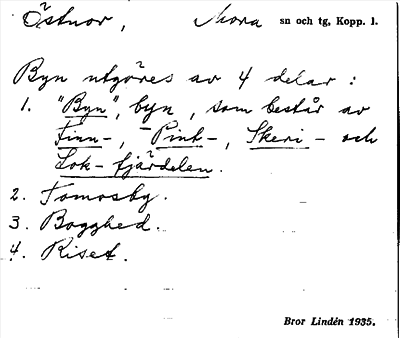 Östnor, Mora sn och tg, Kopp. l.
Byn utgöres av 4 delar :
1. "Byn", byn, som består av
Finn-, Pink-, Skeri- och
Lok-fjärdelen.
2. Tomosby.
3. Bogghed.
4. Riset.
Bror Lindén 1935.